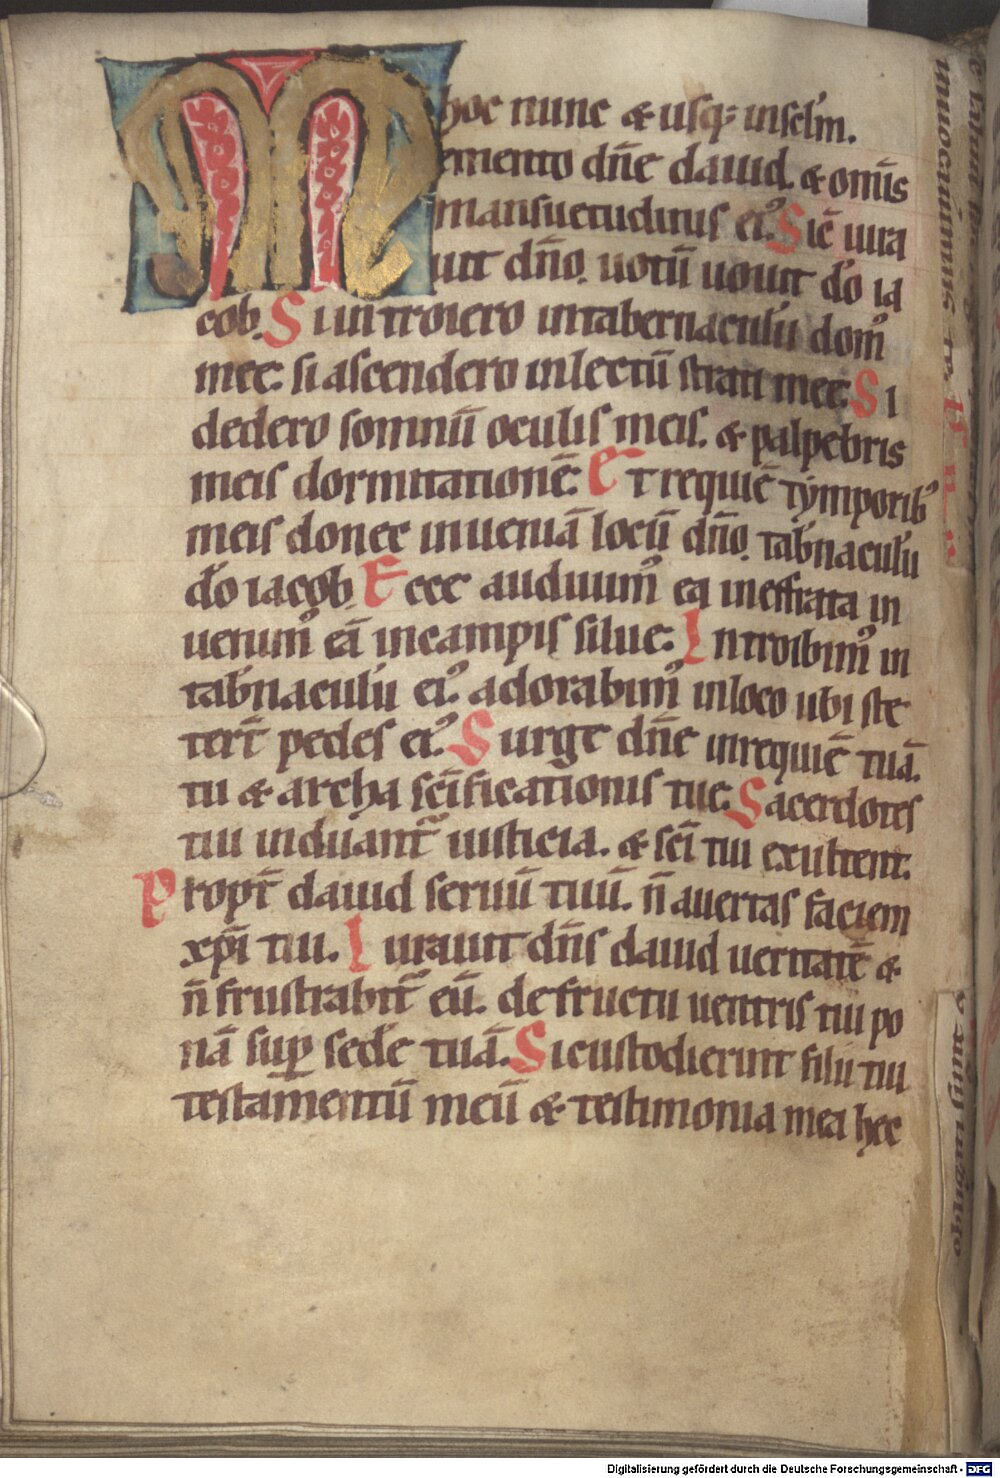 hoc nunc & usq; insclm.
Memento dñe dauid. & omĩs
mansuetudinis ei᾿. Sic̄ iura
uit dño. uotũ uouit d̄o ia
cob. Si introiero intabernaculũ dom᾿
mee. si ascendero inlectũ strati mee. Si
dedero somnũ oculis meis. & palpebris
meis dormitationẽ. Et requiẽ tymporib᾿
meis donec inueniã locũ dño. tab̄naculũ
d̄o iacob. Ecce audiuim᾿ eã ineffrata in
uenim᾿ eã incampis silue. Introibim᾿ in
tab̄naculũ ei᾿. adorabim᾿ inloco ubi ste
ter̄t pedes ei᾿. Surge dñe inrequiẽ tuã.
tu & archa sc̄ificationis tue. Sacerdotes
tui induant᾿ iusticia. & sc̄i tui exultent.
Propt̄ dauid seruũ tuũ. ñ auertas faciem
xp̄i tui. Iurauit dñs dauid ueritatẽ &
ñ frustrabit᾿ eũ. de fructu uentris tui po
nã sup̄ sedẽ tuã. Si custodierint filii tui
testamentũ meũ & testimonia mea hec
Digitalisierung gefördert durch die Deutsche Forschungsgemeinschaft - DFG